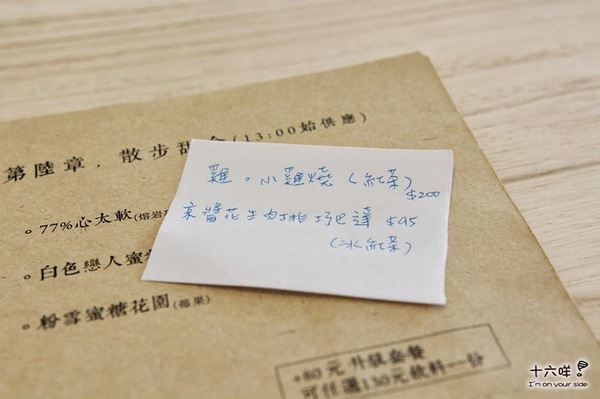 第陸章，散步甜
(13:00始供應)
。77%心太軟(熔岩
。白色戀人蜜
。粉雪蜜糖花園(莓果)
雞。小雞燒(紅茶)
$200
京醬花生肉排巧巴達 $95
(冰紅茶)
+80元 升級套餐
可任選130元飲料一份
十六咩
I'm on your side